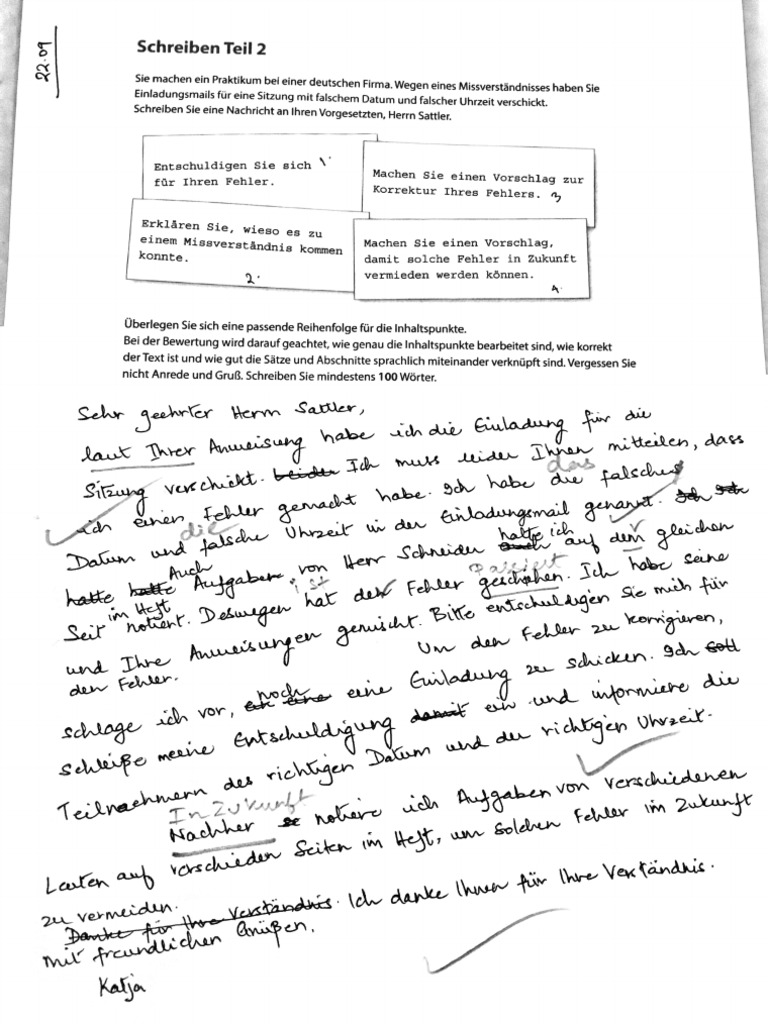 22.09
Schreiben Teil 2
Sie machen ein Praktikum bei einer deutschen Firma. Wegen eines Missverständnisses haben Sie
Einladungsmails für eine Sitzung mit falschem Datum und falscher Uhrzeit verschickt.
Schreiben Sie eine Nachricht an Ihren Vorgesetzten, Herrn Sattler.
Entschuldigen Sie sich 1.
für Ihren Fehler.
Machen Sie einen Vorschlag zur
Korrektur Ihres Fehlers. 3
Erklären Sie, wieso es zu
einem Missverständnis kommen
konnte.
2.
Machen Sie einen Vorschlag,
damit solche Fehler in Zukunft
vermieden werden können.
4.
Überlegen Sie sich eine passende Reihenfolge für die Inhaltspunkte.
Bei der Bewertung wird darauf geachtet, wie genau die Inhaltspunkte bearbeitet sind, wie korrekt
der Text ist und wie gut die Sätze und Abschnitte sprachlich miteinander verknüpft sind. Vergessen Sie
nicht Anrede und Gruß. Schreiben Sie mindestens 100 Wörter.
Sehr geehrter Herrn Sattler,
laut Ihrer Anweisung habe ich die Einladung für die
Sitzung verschickt. leider Ich muss leider Ihnen mitteilen, dass
ich einen Fehler gemacht habe. Ich habe die falsche
das
Datum und falsche Uhrzeit in der Einladungsmail genannt. Ich
die
hatte hatte Aufgaben von Herr Schneider hatte ich auf dem gleichen
Auch
Seit notiert. Deswegen hat der Fehler geschehen. Ich habe seine
im Heft
ist
passiert
und Ihre Anweisungen gemischt. Bitte entschuldigen Sie mich für
den Fehler.
Um den Fehler zu korrigieren,
schlage ich vor, noch eine Einladung zu schicken. Ich
schleiße meine Entschuldigung damit ein und informiere die
Teilnachmern des richtigen Datum und der richtigen Uhrzeit.
In Zukunft
Nachher notiere ich Aufgaben von verschiedenen
Leuten auf verschieden Seiten im Heft, um solchen Fehler im Zukunft
zu vermeiden.
Danke für Ihre Verständnis. Ich danke Ihnen für Ihre Verständnis.
Mit freundlichen Grüßen.
Katja